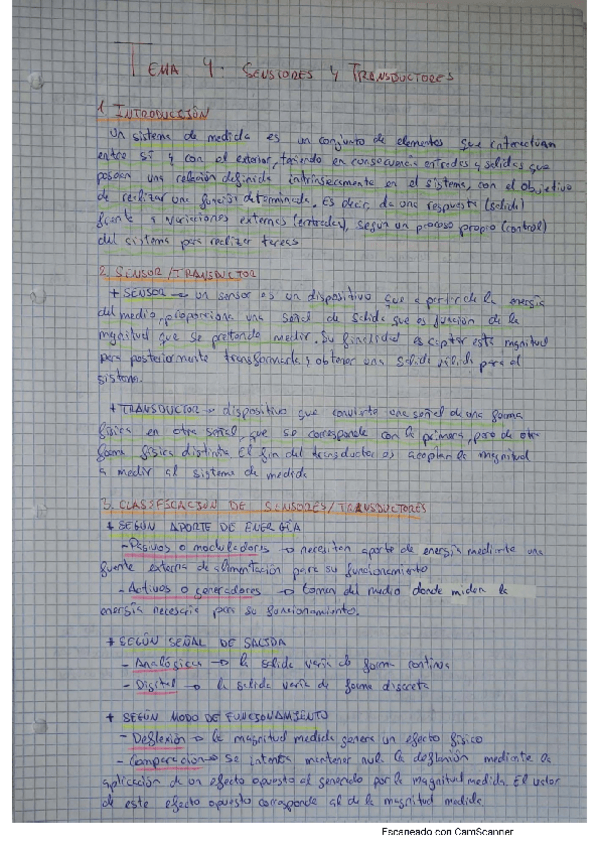 TEMA 4: SENSORES Y TRANSDUCTORES
1. INTRODUCCIÓN
Un sistema de medida es un conjunto de elementos que interactúan
entre sí y con el exterior, teniendo en consecuencia entradas y salidas que
posean una relación definida intrínsecamente en el sistema, con el objetivo
de realizar una función determinada. Es decir, da una respuesta (salida)
frente a variaciones externas (entradas), según un proceso propio (control)
del sistema para realizar tareas
2. SENSOR/TRANSDUCTOR
+ SENSOR → un sensor es un dispositivo que a partir de la energía
del medio, proporciona una señal de salida que es función de la
magnitud que se pretende medir. Su finalidad es captar esta magnitud
para posteriormente transformarla y obtener una salida válida para el
sistema.
+ TRANSDUCTOR → dispositivo que convierte una señal de una forma
física en otra señal, que se corresponde con la primera, pero de otra
forma física distinta. El fin del transductor es acoplar la magnitud
a medir al sistema de medida
3. CLASIFICACION DE SENSORES/TRANSDUCTORES
+ SEGÚN APORTE DE ENERGÍA
- Pasivos o moduladores → necesitan aporte de energía mediante una
fuente externa de alimentación para su funcionamiento
- Activos o generadores → toman del medio donde miden la
energía necesaria para su funcionamiento.
+ SEGÚN SEÑAL DE SALIDA
- Analógica → la salida varía de forma continua
- Digital → la salida varía de forma discreta
+ SEGÚN MODO DE FUNCIONAMIENTO
- Deflexión → la magnitud medida genera un efecto físico
- Comparacion → se intenta mantener nula la deflexión mediante la
aplicación de un efecto opuesto al generado por la magnitud medida. El valor
de este efecto opuesto corresponde al de la magnitud medida
Escaneado con CamScanner